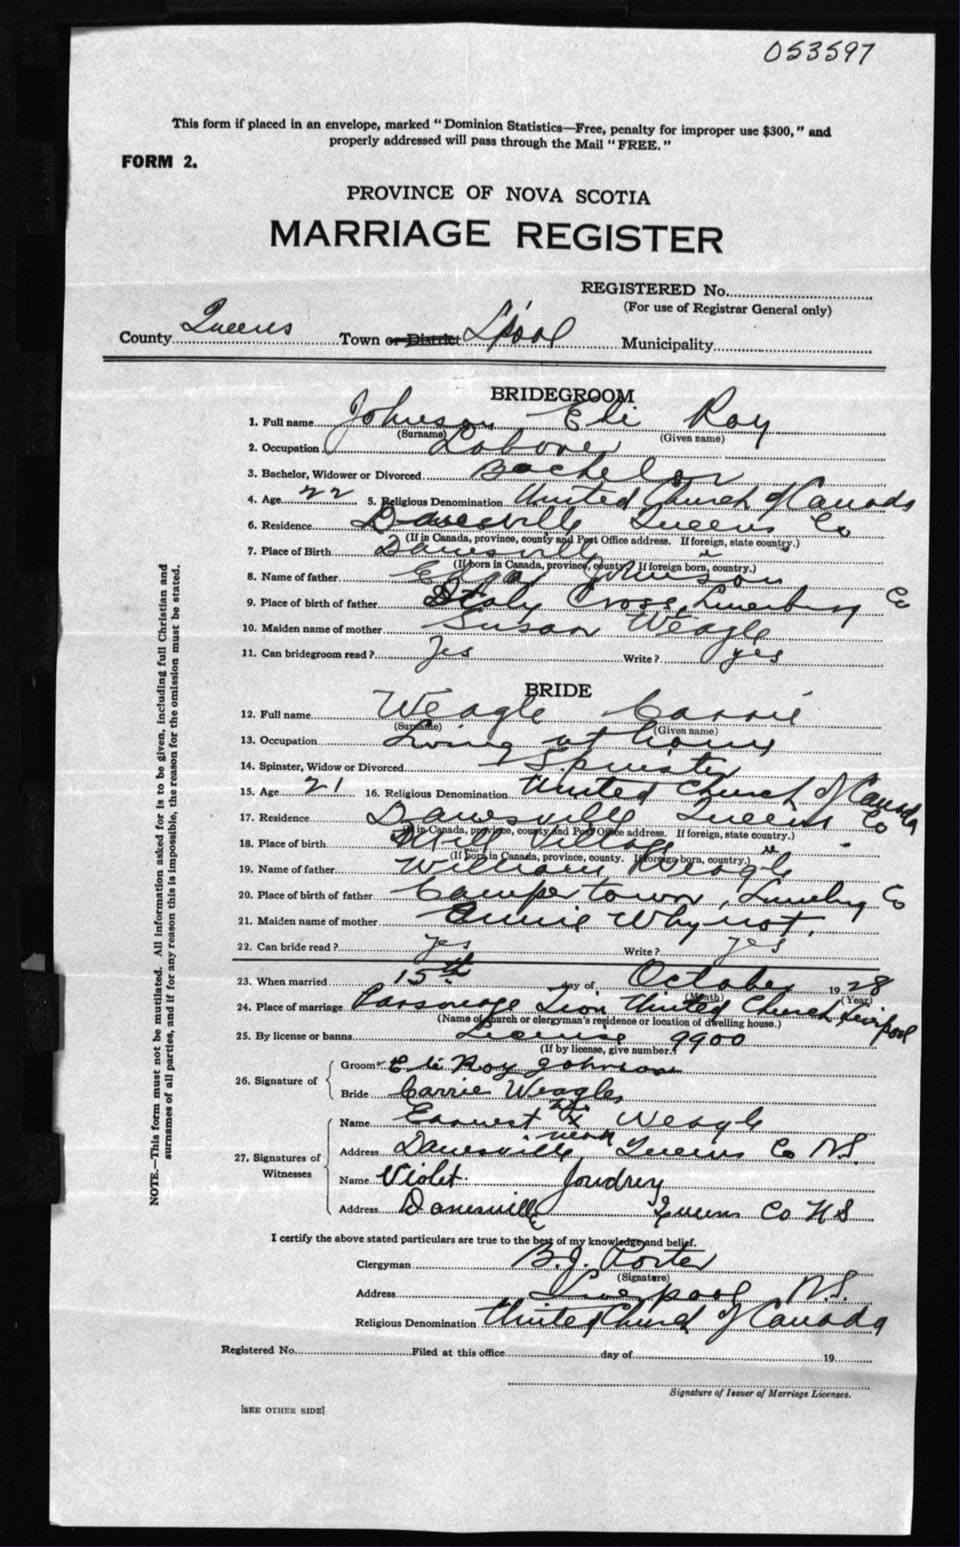 053597
This form if placed in an envelope, marked "Dominion Statistics—Free, penalty for improper use $300," and
properly addressed will pass through the Mail "FREE."
FORM 2.
PROVINCE OF NOVA SCOTIA
MARRIAGE REGISTER
REGISTERED No.
(For use of Registrar General only)
County Queens Town or District L'pool Municipality
BRIDEGROOM
1. Full name Johnson Eli Roy
(Surname) (Given name)
2. Occupation Laborer
3. Bachelor, Widower or Divorced Bachelor
4. Age 22 5. Religious Denomination United Church of Canada
6. Residence Danesville Queens Co
(If in Canada, province, county and Post Office address. If foreign, state country.)
7. Place of Birth Danesville
(If born in Canada, province, county. If foreign born, country.)
8. Name of father Johnson
9. Place of birth of father Italy Cross, Lunenburg Co
10. Maiden name of mother Susan Weagle
11. Can bridegroom read? Yes Write? yes
BRIDE
12. Full name Weagle Carrie
(Surname) (Given name)
13. Occupation Living at home
14. Spinster, Widow or Divorced Spinster
15. Age 21 16. Religious Denomination United Church of Canada
17. Residence Danesville Queens Co
(If in Canada, province, county and Post Office address. If foreign, state country.)
18. Place of birth Mill Village
(If born in Canada, province, county. If foreign born, country.)
19. Name of father William Weagle
20. Place of birth of father Campertown, Lunenburg Co
21. Maiden name of mother Annie Whynot.
22. Can bride read? yes Write? yes
23. When married 15th day of October 1928
(Month) (Year)
24. Place of marriage Parsonage Zion United Church, Liverpool
(Name of church or clergyman's residence or location of dwelling house.)
25. By license or banns License 9900
(If by license, give number.)
26. Signature of
Groom Eli Roy Johnson
Bride Carrie Weagle
27. Signatures of Witnesses
Name Earnest his x mark Weagle
Address Danesville, Queens Co N.S.
Name Violet Joudrey
Address Danesville Queens Co N S
I certify the above stated particulars are true to the best of my knowledge and belief.
Clergyman B. J. Porter
(Signature)
Address Liverpool N.S.
Religious Denomination United Church of Canada
Registered No. Filed at this office day of 19
Signature of Issuer of Marriage Licenses.
[SEE OTHER SIDE]
NOTE.—This form must not be mutilated. All information asked for is to be given, including full Christian and
surnames of all parties, and if for any reason this is impossible, the reason for the omission must be stated.